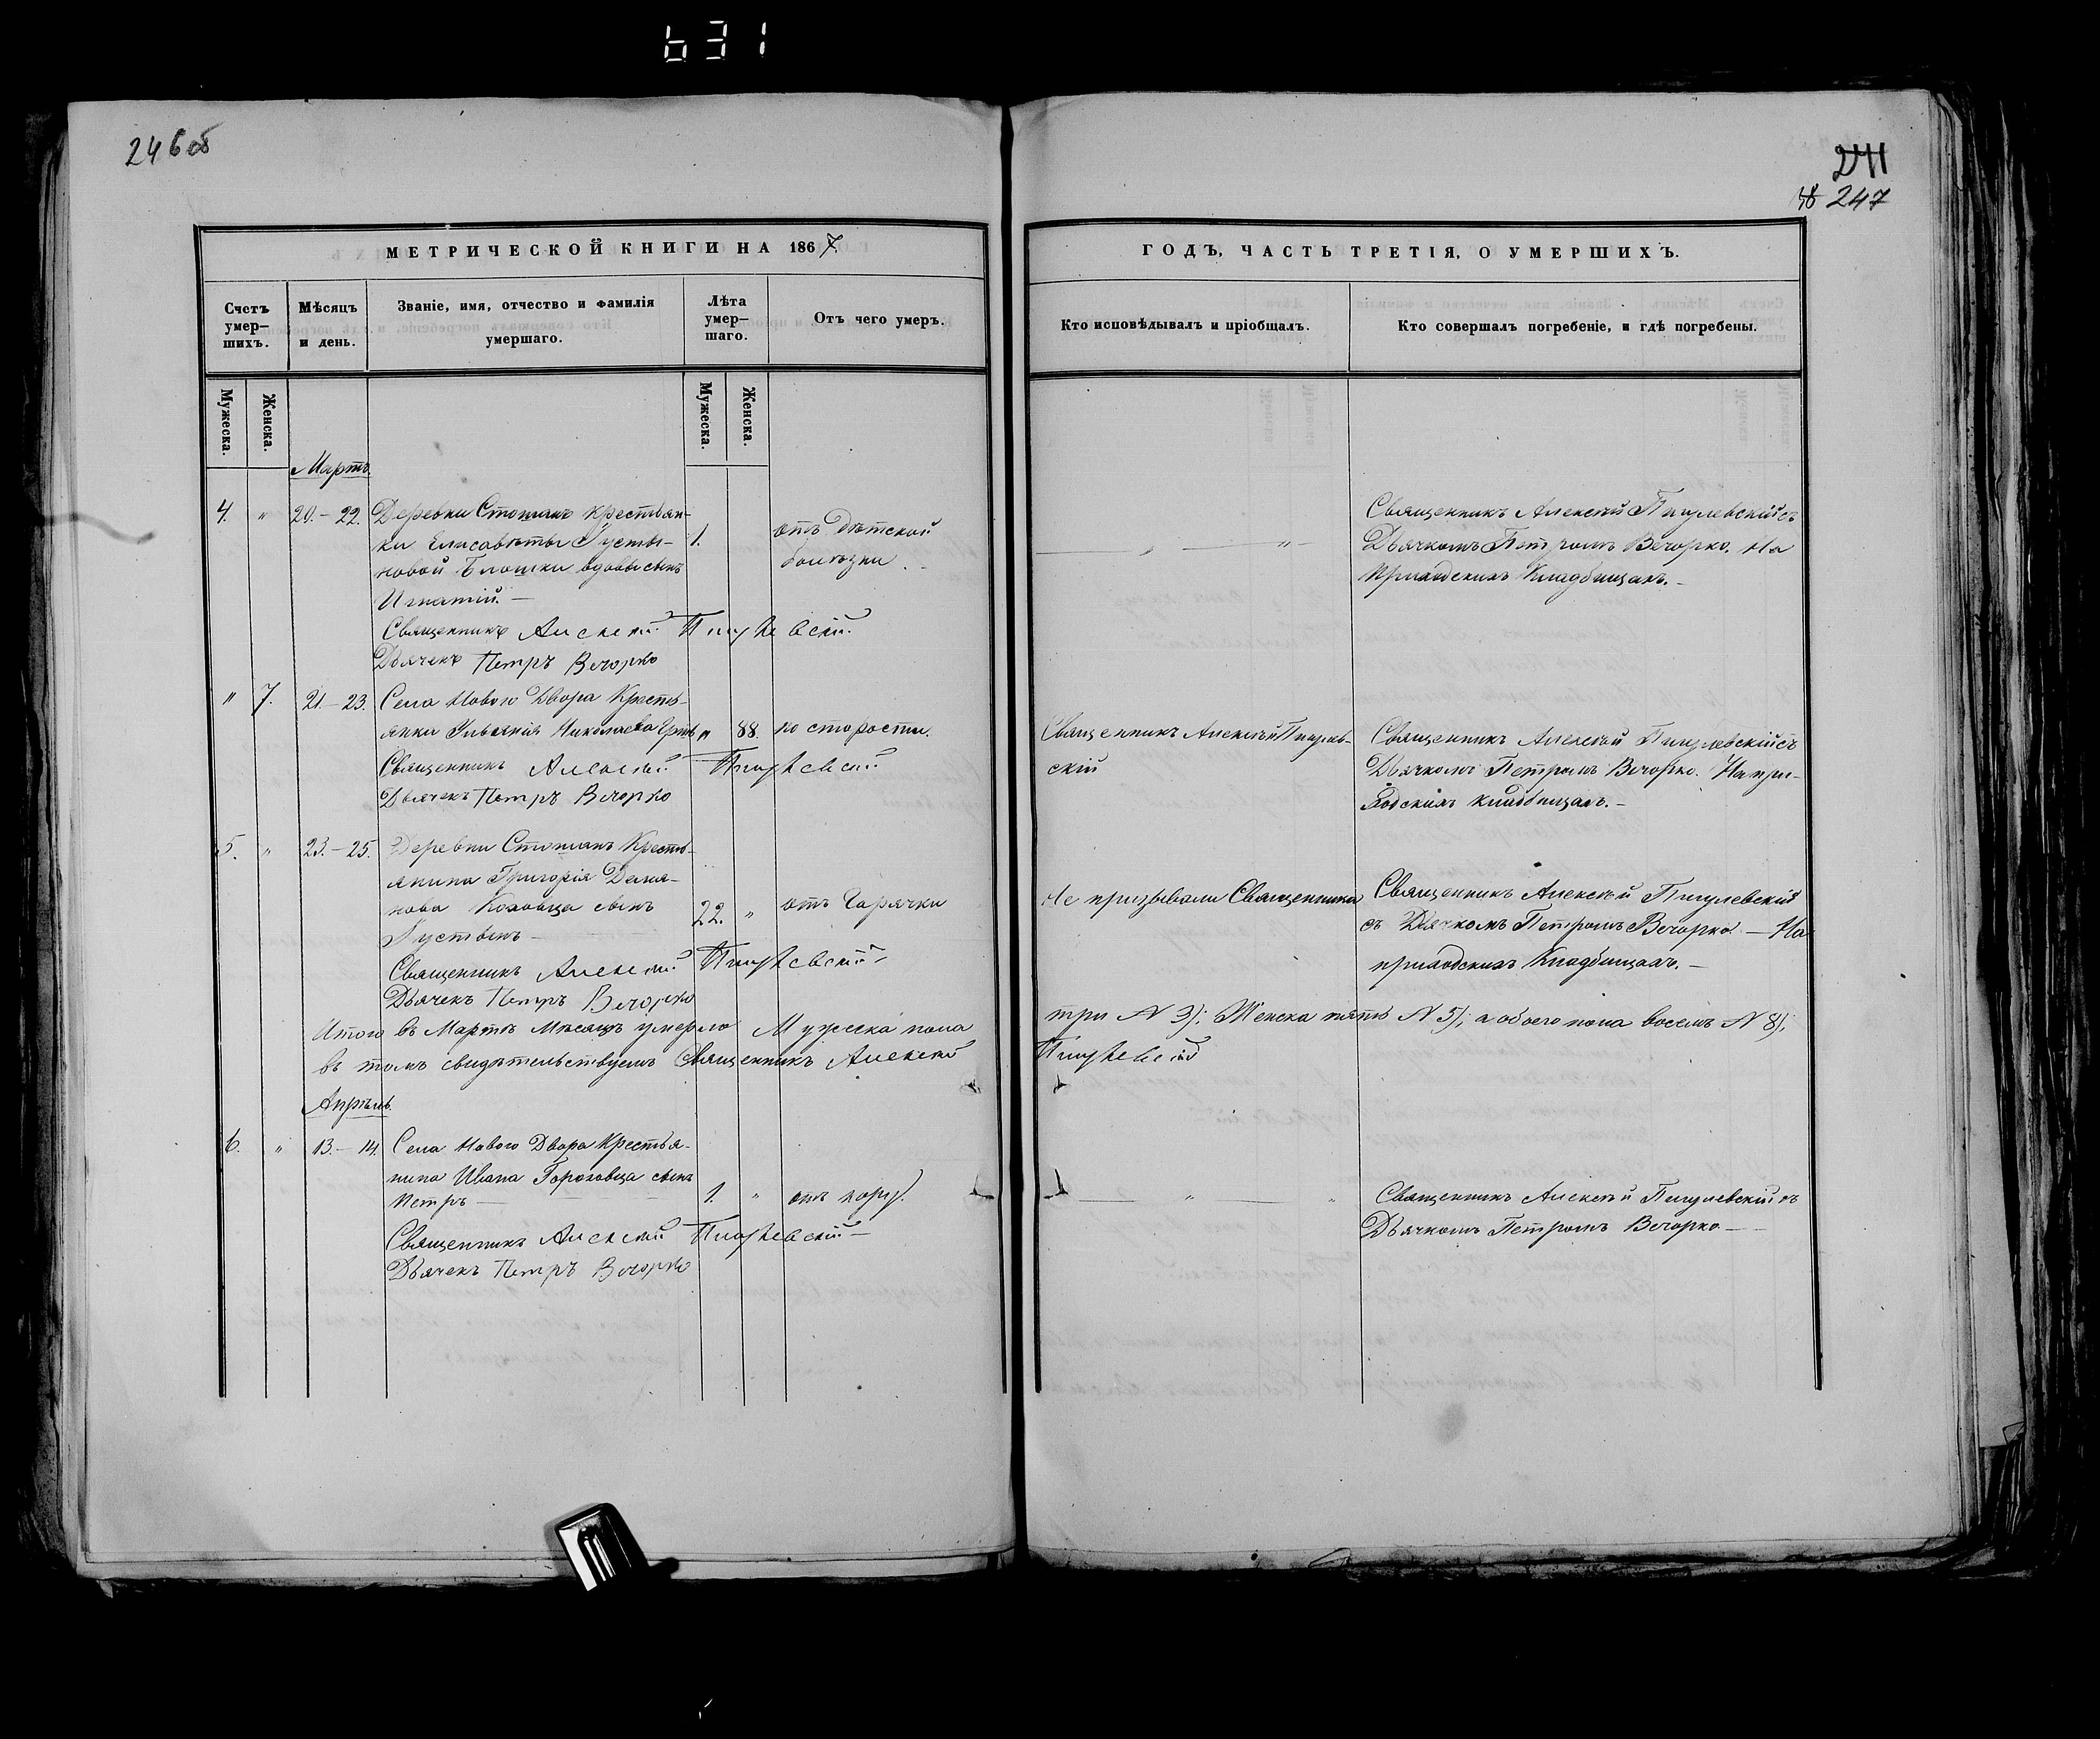 631
246 об
241
247
МЕТРИЧЕСКОЙ КНИГИ НА 1867
ГОДЪ, ЧАСТЬ ТРЕТІЯ, О УМЕРШИХЪ.
Счетъ умер-
шихъ.
Мѣсяцъ
и день.
Званіе, имя, отчество и фамилія
умершаго.
Лѣта
умер-
шаго.
Отъ чего умеръ.
Кто исповѣдывалъ и пріобщалъ.
Кто совершалъ погребеніе, и гдѣ погребены.
Мужеска.
Женска.
Мужеска.
Женска.
Мартъ.
4. " 20.–22. Деревни Стошанъ крестьян-
ки Елисаветы Густы-
новой Блошки вдовы сынъ
Игнатій. —
1.
отъ дѣтской
болѣзни.
Священникъ Алексѣй Пигулевскій съ
Дьячкомъ Петромъ Вечорко. На
приходскихъ кладбищахъ. –
Священникъ Алексѣй Пигулевскій
Дьячекъ Петръ Вечорко
" 7. 21.–23. Села Новаго Двора Кресть-
янка Ульянія Николаева
" 88. по старости.
Священникъ Алексѣй Пигулев-
скій
Священникъ Алексѣй Пигулевскій съ
Дьячкомъ Петромъ Вечорко. На при-
ходскихъ кладбищахъ. –
Священникъ Алексѣй Пигулевскій
Дьячекъ Петръ Вечорко
5. " 23.–25. Деревни Стошанъ Кресть-
янина Григорія Демя-
нова Коховца сынъ
Густынъ —
22. " отъ горячки
Не призывали Священника
Священникъ Алексѣй Пигулевскій
съ Дьячкомъ Петромъ Вечорко — На
приходскихъ кладбищахъ. –
Священникъ Алексѣй Пигулевскій
Дьячекъ Петръ Вечорко
Итого въ Мартѣ Мѣсяцѣ умерло Мужеска пола три N 3); Женска пять N 5); а обоего пола восемь N 8);
въ томъ свидѣтельствуемъ Священникъ Алексѣй Пигулевскій
Апрѣль.
6. " 13.–14. Села Новаго Двора Крестья-
нина Ивана Гороховца сынъ
Петръ —
1. " отъ
Священникъ Алексѣй Пигулевскій съ
Дьячкомъ Петромъ Вечорко —
Священникъ Алексѣй Пигулевскій —
Дьячекъ Петръ Вечорко